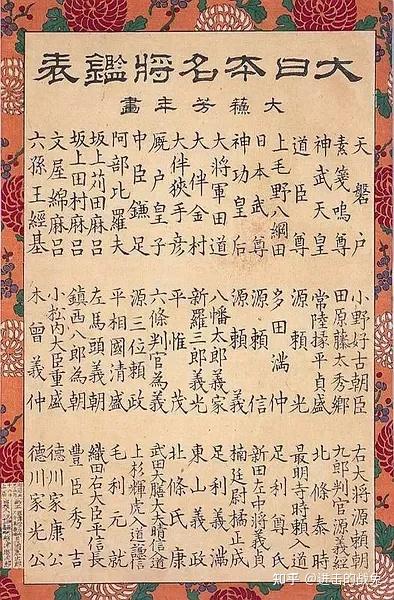 大日本名將鑑表
大蘓芳年畫
天磐戸
素箋嗚尊
神武天皇
道臣尊
上毛野八綱田
日本武尊
神功皇后
大將軍田道
大伴金村
大伴狹手彦
厩戸皇子
中臣鎌足
阿部比羅夫
坂上苅田麻呂
坂上田村麻呂
文屋綿麻呂
六孫王經基
小野好古朝臣
田原藤太秀郷
常陸掾平貞盛
源頼光
多田滿仲
源頼信
源頼義
八幡太郎義家
新羅三郎義光
平惟茂
六條判官為義
源三位頼政
平相國清盛
左馬頭義朝
鎮西八郎為朝
小松内大臣重盛
木曾義仲
右大将源頼朝
九郎判官源義経
北條泰時
最明寺時頼入道
新田左中將義貞
足利尊氏
楠廷尉橘正成
足利義滿
東山義政
北條氏康
武田大膳大夫晴信入道
上杉輝虎入道謙信
毛利元就
織田右大臣平信長
豊臣秀吉
徳川家康公
徳川家光公
知乎 @进击的战兔